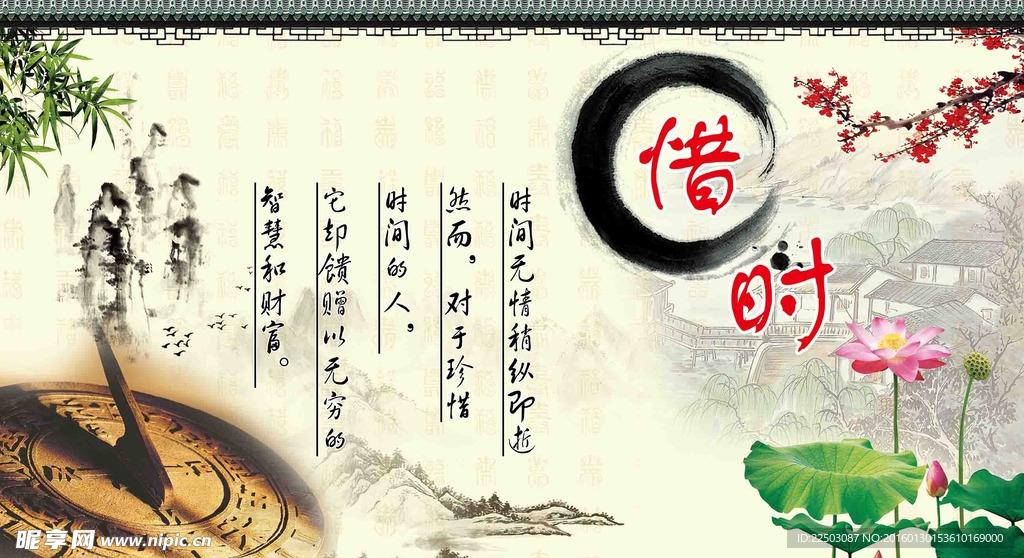 惜时
时间无情稍纵即逝
然而，对于珍惜
时间的人，
它却馈赠以无穷的
智慧和财富。
昵享网 www.nipic.cn
ID:22503087 NO:20160130153610169000